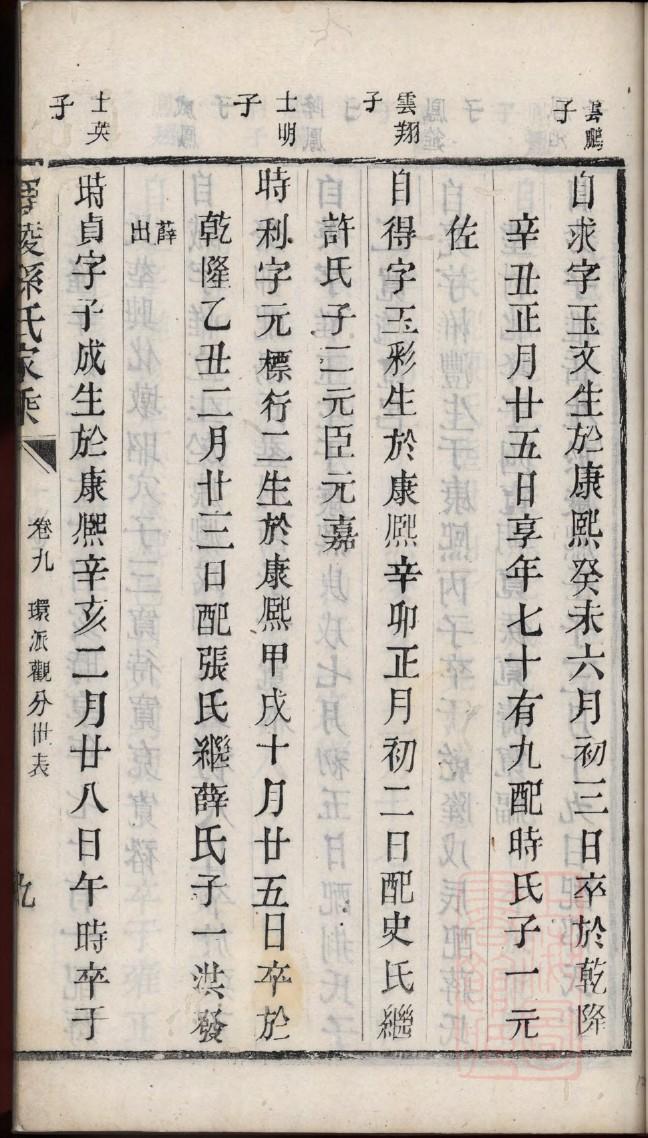 雲鵬
子
自求字玉文生於康熙癸未六月初三日卒於乾隆
辛丑正月廿五日享年七十有九配時氏子一元
佐
雲翔
子
自得字玉彩生於康熙辛卯正月初二日配史氏繼
許氏子二元臣元嘉
士明
子
時利字元標行二生於康熙甲戌十月廿五日卒於
乾隆乙丑二月廿三日配張氏繼薛氏子一洪發
薛
出
士英
子
時貞字子成生於康熙辛亥二月廿八日午時卒于
陵孫氏家乘
卷九 環派觀分世表
九